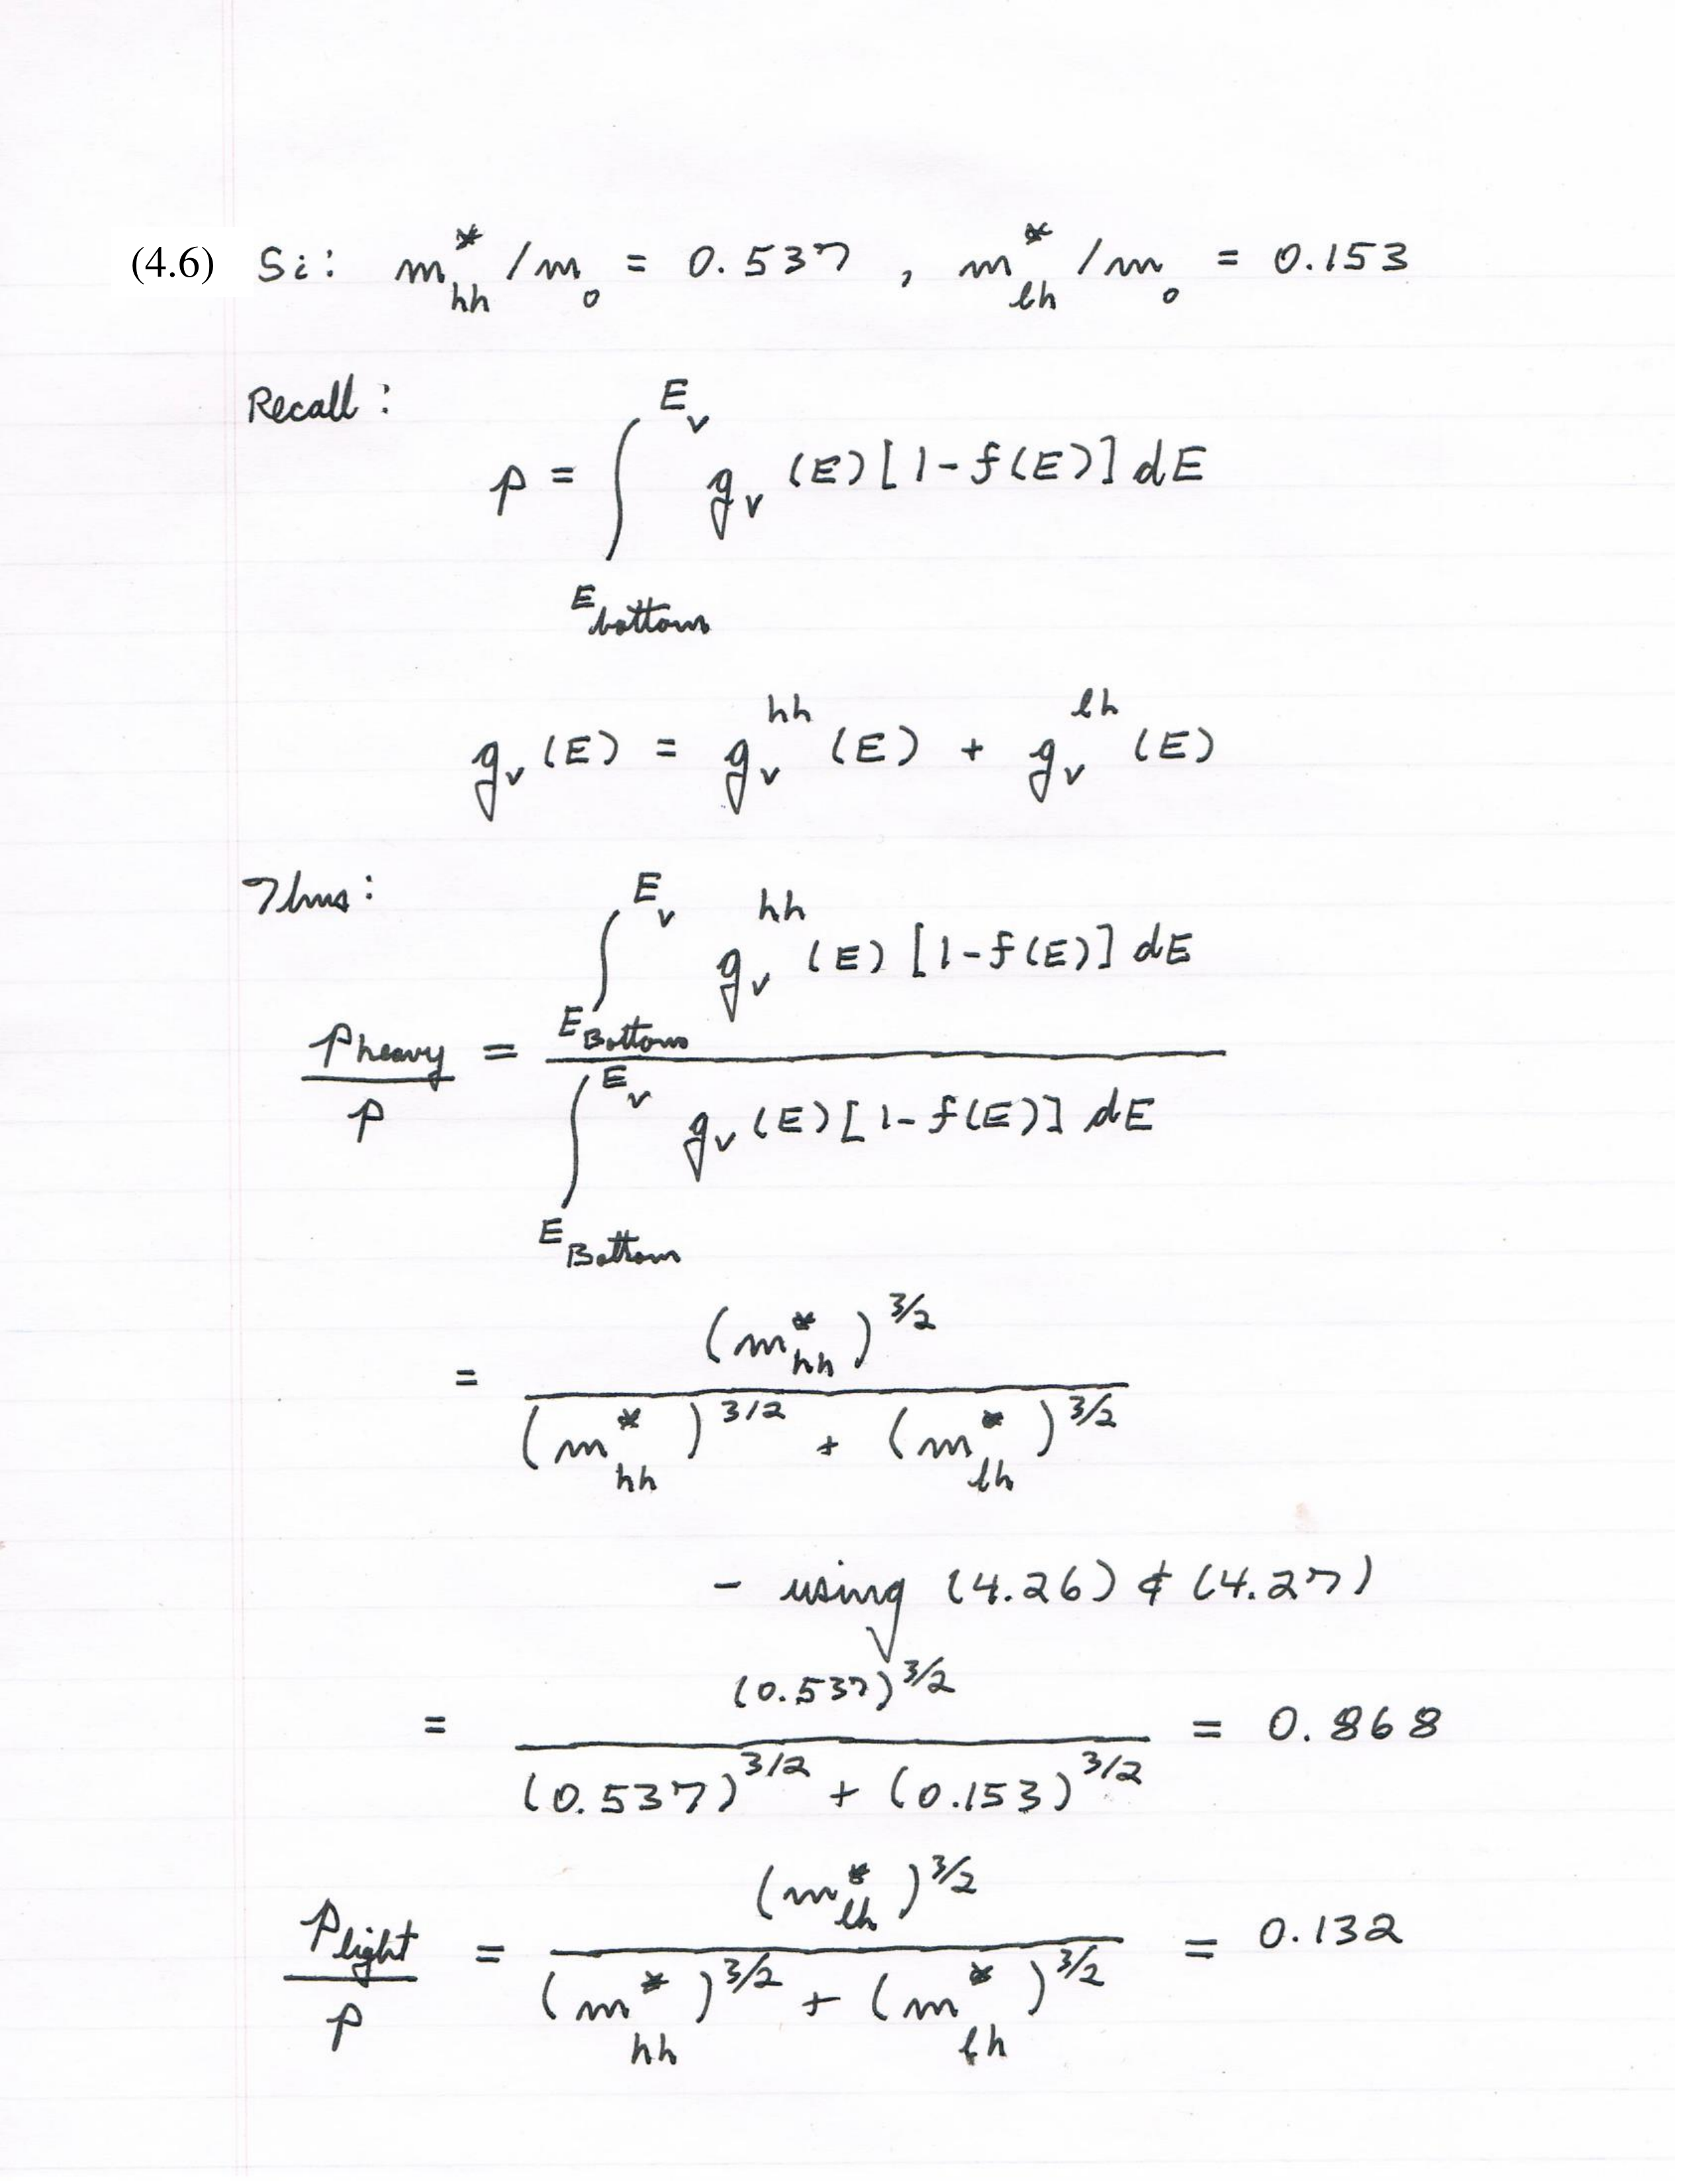 (4.6) Si: m*hh /m0 = 0.537 , m*lh /m0 = 0.153
Recall:
p = ∫_{Ebottom}^{Ev} gv (E) [1-f(E)] dE
gv (E) = gv^hh (E) + gv^lh (E)
Thus:
pheavy / p = ∫_{EBottom}^{Ev} gv^hh (E) [1-f(E)] dE / ∫_{EBottom}^{Ev} gv (E) [1-f(E)] dE
= (m*hh)^3/2 / (m*hh)^3/2 + (m*lh)^3/2
- using (4.26) & (4.27)
= (0.537)^3/2 / (0.537)^3/2 + (0.153)^3/2 = 0.868
plight / p = (m*lh)^3/2 / (m*hh)^3/2 + (m*lh)^3/2 = 0.132